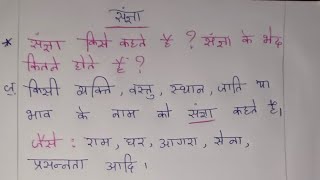 संज्ञा
* संज्ञा किसे कहते हैं ? संज्ञा के भेद
कितने होते हैं ?
उ. किसी व्यक्ति, वस्तु, स्थान, जाति या
भाव के नाम को संज्ञा कहते हैं।
जैसे : राम, घर, आगरा, सेना,
प्रसन्नता आदि।